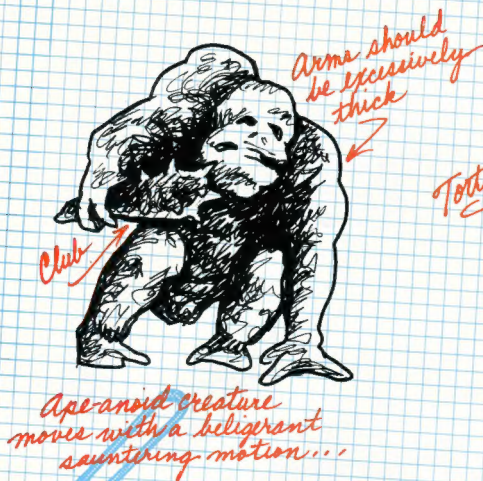 Arms should
be excessively
thick
Club
Ape-anoid creature
moves with a beligerant
sauntering motion...